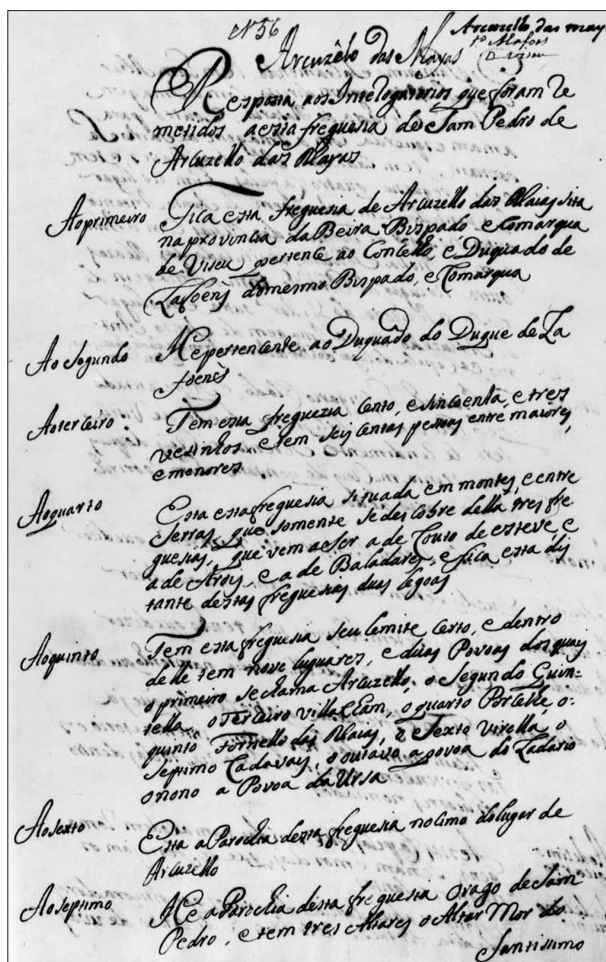 N 56
Arcuzello das maya
Arcuzêlo das Mayas
Resposta aos Intelogatorios que foram Re
metidos aesta freguesia de Sam Pedro de
Arcuzello das Mayas
Ao primeiro Fica esta freguesia de Arcuzello das Maias sita
na provincia da Beira Bispado e Comarqua
de Viseu pertente ao Concelho, e Duquado de
Lafoens do mesmo Bispado, e Comarqua
Ao Segundo He pertencente ao Duquado do Duque de La
foens
Ao terceiro Tem esta freguezia cento, e sincoenta, e tres
vesinhos e tem seis centas pessoas entre maiores,
e menores
Ao quarto Esta esta freguesia situada em montes, e entre
Serras, que somente se des cobre della tres fre
guesias, que vem a ser a de Couto de esteve, e
a de Aroiz, e a de Baladares, e fica esta dis
tante destas freguesias duas legoas
Ao quinto Tem esta freguesia seu lemite certo, e dentro
delle tem nove luguares, e duas Povoas dos quais
o primeiro se chama Arcuzello, o Segundo Quin=
tella, o Terceiro villa Cham, o quarto Porcelle o=
quinto Fornello das Maias, o Sexto Virella, o
septimo Cadavais, o outavo a povoa do Ladario
o nono a Povoa da Ursa
Ao sexto Esta a Parochia desta freguesia no cimo do lugar de
Arcuzello
Ao septimo He a Parochia desta freguesia Orago de Sam
Pedro, e tem tres Altares o Altar Mor do
Santissimo